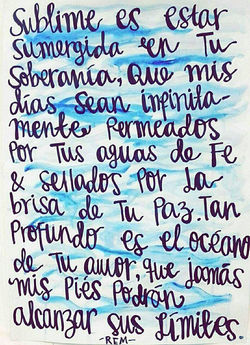 Sublime es estar
sumergida en Tu
Soberanía, Que mis
días sean infinita-
mente Permeados
Por Tus aguas de Fe
& sellados Por la
brisa de Tu Paz. Tan
Profundo es el océano
de Tu amor, que jamás
mis Piés Podrán
alcanzar sus Límites.
-REM-